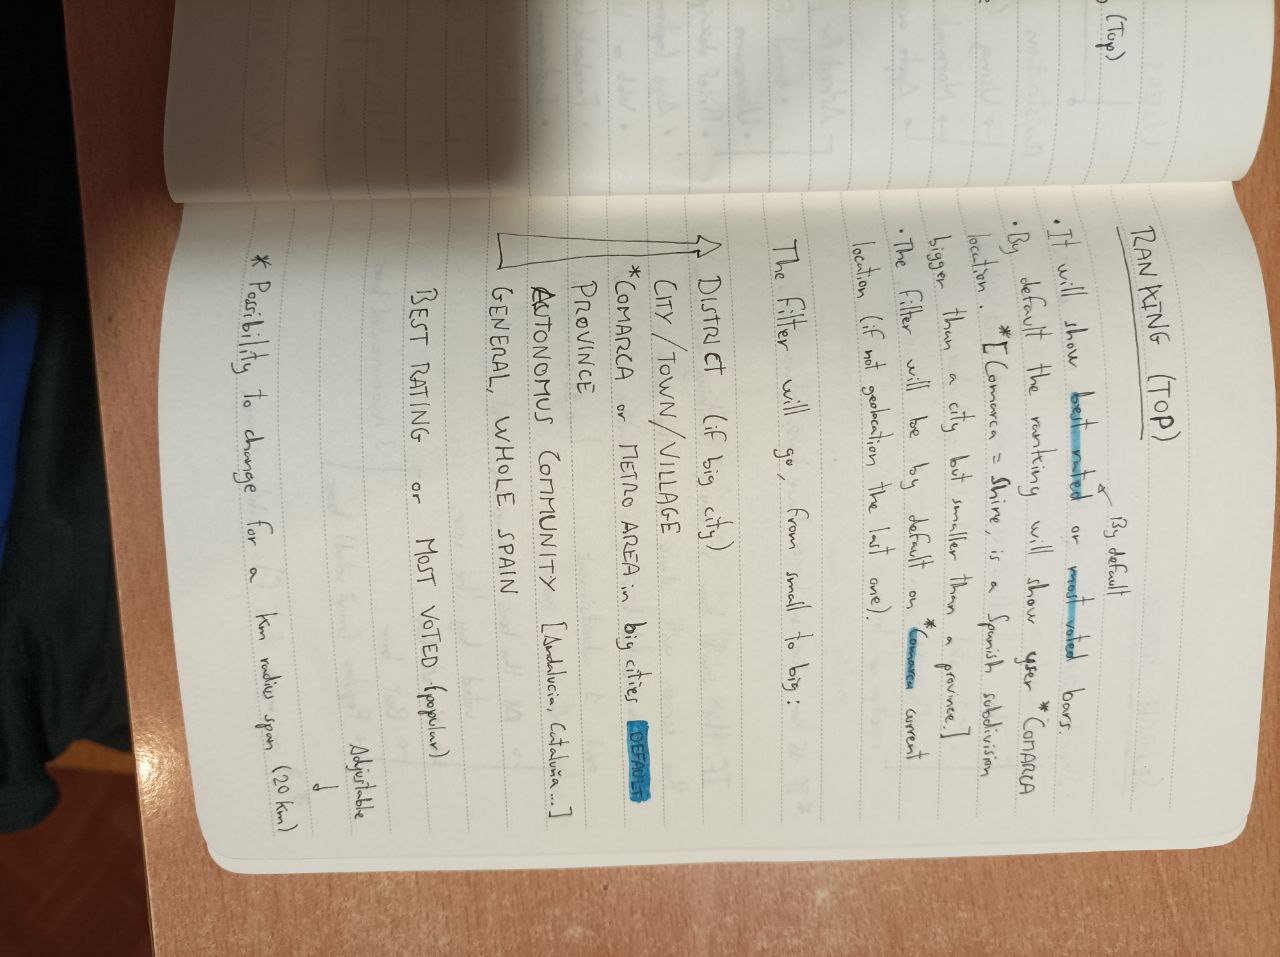 (Top)
RANKING (TOP)
By default
• It will show best rated or most voted bars.
• By default the ranking will show user *COMARCA
location. *[Comarca = Shire, is a Spanish subdivision
bigger than a city but smaller than a province.]
• The filter will be by default on *Comarca current
location (if not geolocation the last one).
The filter will go, from small to big:
DISTRICT (if big city)
CITY/TOWN/VILLAGE
*COMARCA or METRO AREA in big cities DEFAULT
PROVINCE
AUTONOMUS COMMUNITY [Andalucia, Cataluña...]
GENERAL, WHOLE SPAIN
BEST RATING or MOST VOTED (popular)
Adjustable
* Possibility to change for a km radius span (20 km)